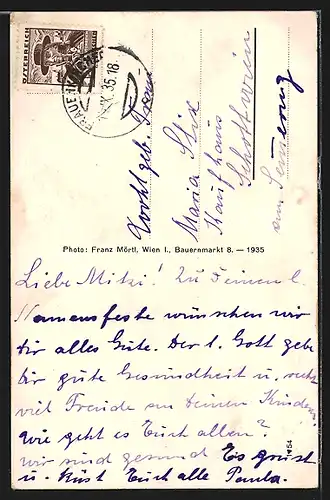 ÖSTERREICH
FRAUENKIRCHEN
IX.35.18
Hochgeb. Frau
Maria Stix
Kaufhaus
Schottwien
am Semmering
Photo: Franz Mörtl, Wien I., Bauernmarkt 8. — 1935
Liebe Mitzi! Zu Deinem l.
Namensfeste wünschen wir
Dir alles Gute. Der l. Gott gebe
Dir gute Gesundheit u. recht
viel Freude an Deinen Kindern.
Wie geht es Euch allen?
Wir sind gesund Es grüst
u. Küst Euch alle Paula.
154